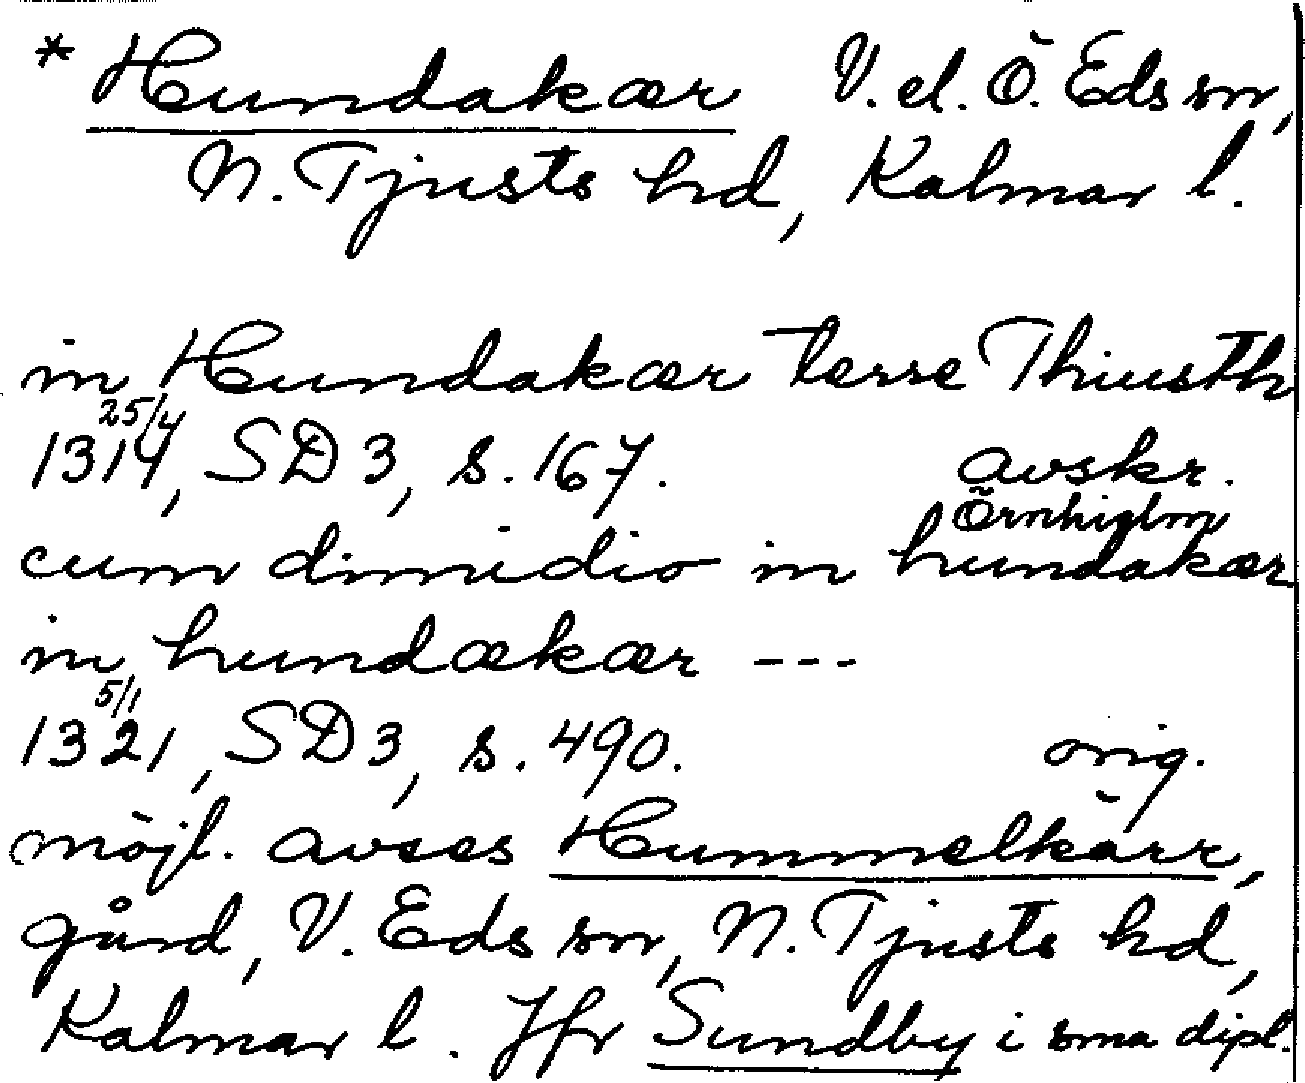 * Hundakær V. el. Ö. Eds sn,
N. Tjusts hd, Kalmar l.
in Hundakær terre Thiusth
25/4
1314, SD 3, s. 167. avskr.
Örnhielm
cum dimidio in hundakær
in hundækær ---
5/1
1321, SD 3, s. 490. orig.
möjl. avses Hummelkärr,
gård, V. Eds sn, N. Tjusts hd,
Kalmar l. Jfr Sundby i sma dipl.